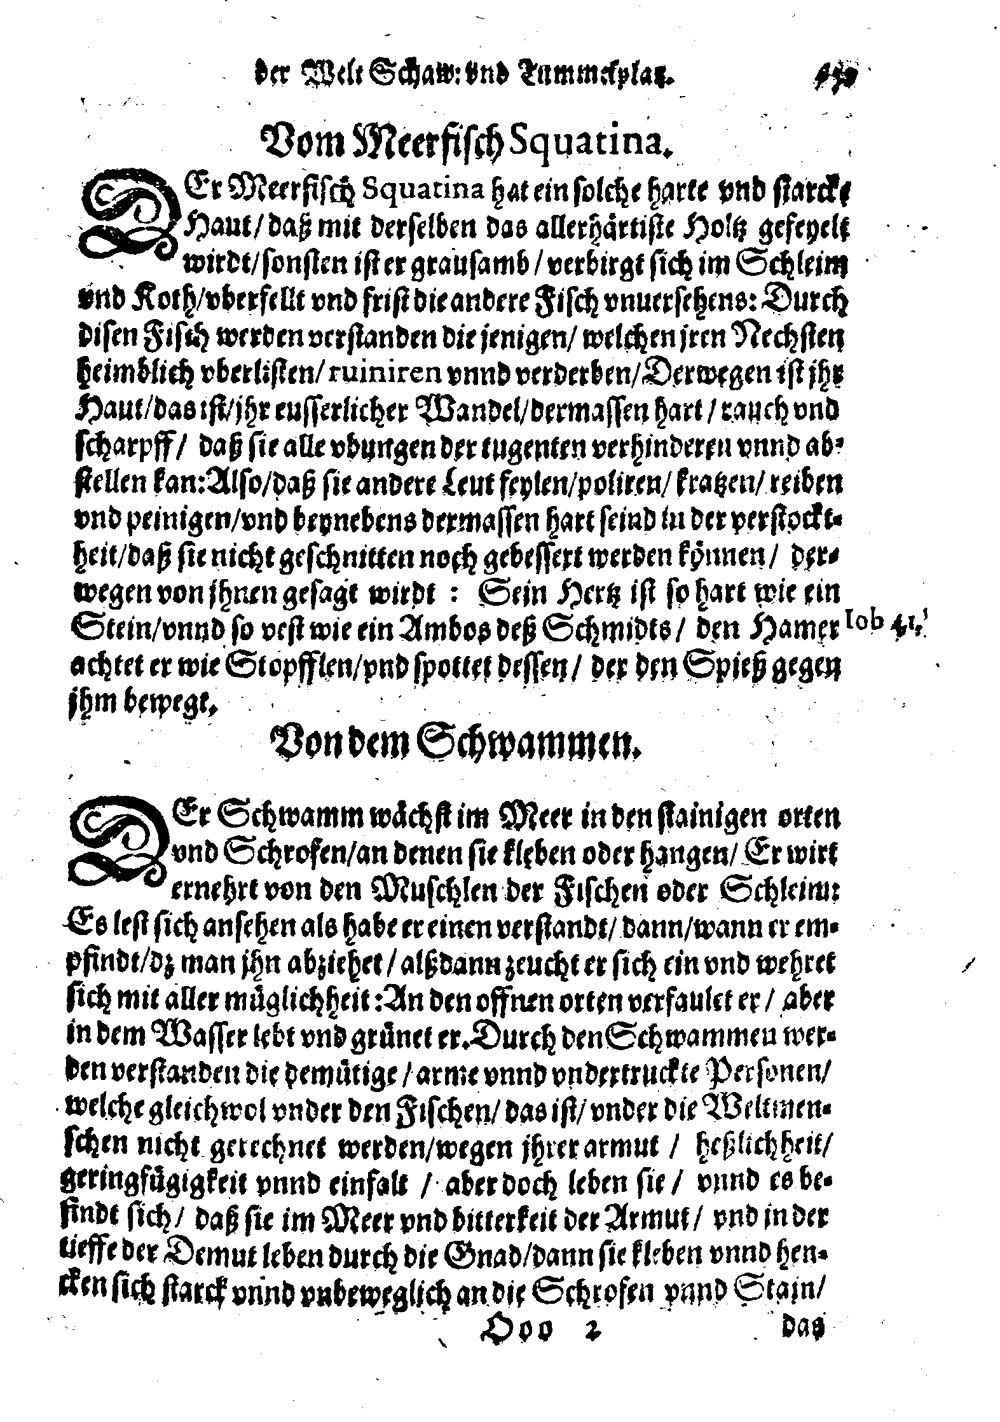 der Welt Schaw: vnd Tummelplatz.
Vom Meerfisch Squatina.
DEr Meerfisch Squatina hat ein solche harte vnd starcke
Haut/daß mit derselben das allerhärtiste Holtz gefeyelt
wirdt/sonsten ist er grausamb/verbirgt sich im Schleim
vnd Koth/vberfellt vnd frist die andere Fisch vnuersehens: Durch
disen Fisch werden verstanden die jenigen/welchen jren Nechsten
heimblich vberlisten/ruiniren vnnd verderben/Derwegen ist jhr
Haut/das ist/jhr eusserlicher Wandel/dermassen hart/rauch vnd
scharpff/ daß sie alle vbungen der tugenten verhinderen vnnd ab-
stellen kan: Also/daß sie andere Leut feylen/poliren/kratzen/reiben
vnd peinigen/vnd beynebens dermassen hart seind in der verstockt-
heit/daß sie nicht geschnitten noch gebessert werden können/ der-
wegen von jhnen gesagt wirdt : Sein Hertz ist so hart wie ein
Stein/vnnd so vest wie ein Ambos deß Schmidts/ den Hamer
Iob 41.
achtet er wie Stopfflen/vnd spottet dessen/ der den Spieß gegen
jhm bewegt.
Von dem Schwammen.
DEr Schwamm wächst im Meer in den stainigen orten
vnd Schrofen/an denen sie kleben oder hangen/ Er wirt
ernehrt von den Muschlen der Fischen oder Schleim:
Es lest sich ansehen als habe er einen verstandt/ dann/wann er em-
pfindt/dz man jhn abziehet/alßdann zeucht er sich ein vnd wehret
sich mit aller müglichheit: An den offnen orten verfaulet er/ aber
in dem Wasser lebt vnd grünet er. Durch den Schwammen wer-
den verstanden die demütige/arme vnnd vndertruckte Personen/
welche gleichwol vnder den Fischen/das ist/vnder die Weltmen-
schen nicht gerechnet werden/wegen jhrer armut / heßlichheit/
geringfügigkeit vnnd einfalt / aber doch leben sie/ vnnd es be-
findt sich/ daß sie im Meer vnd bitterkeit der Armut/ vnd in der
tieffe der Demut leben durch die Gnad/dann sie kleben vnnd hen-
cken sich starck vnnd vnbeweglich an die Schrofen vnnd Stain/
Ooo 2
das